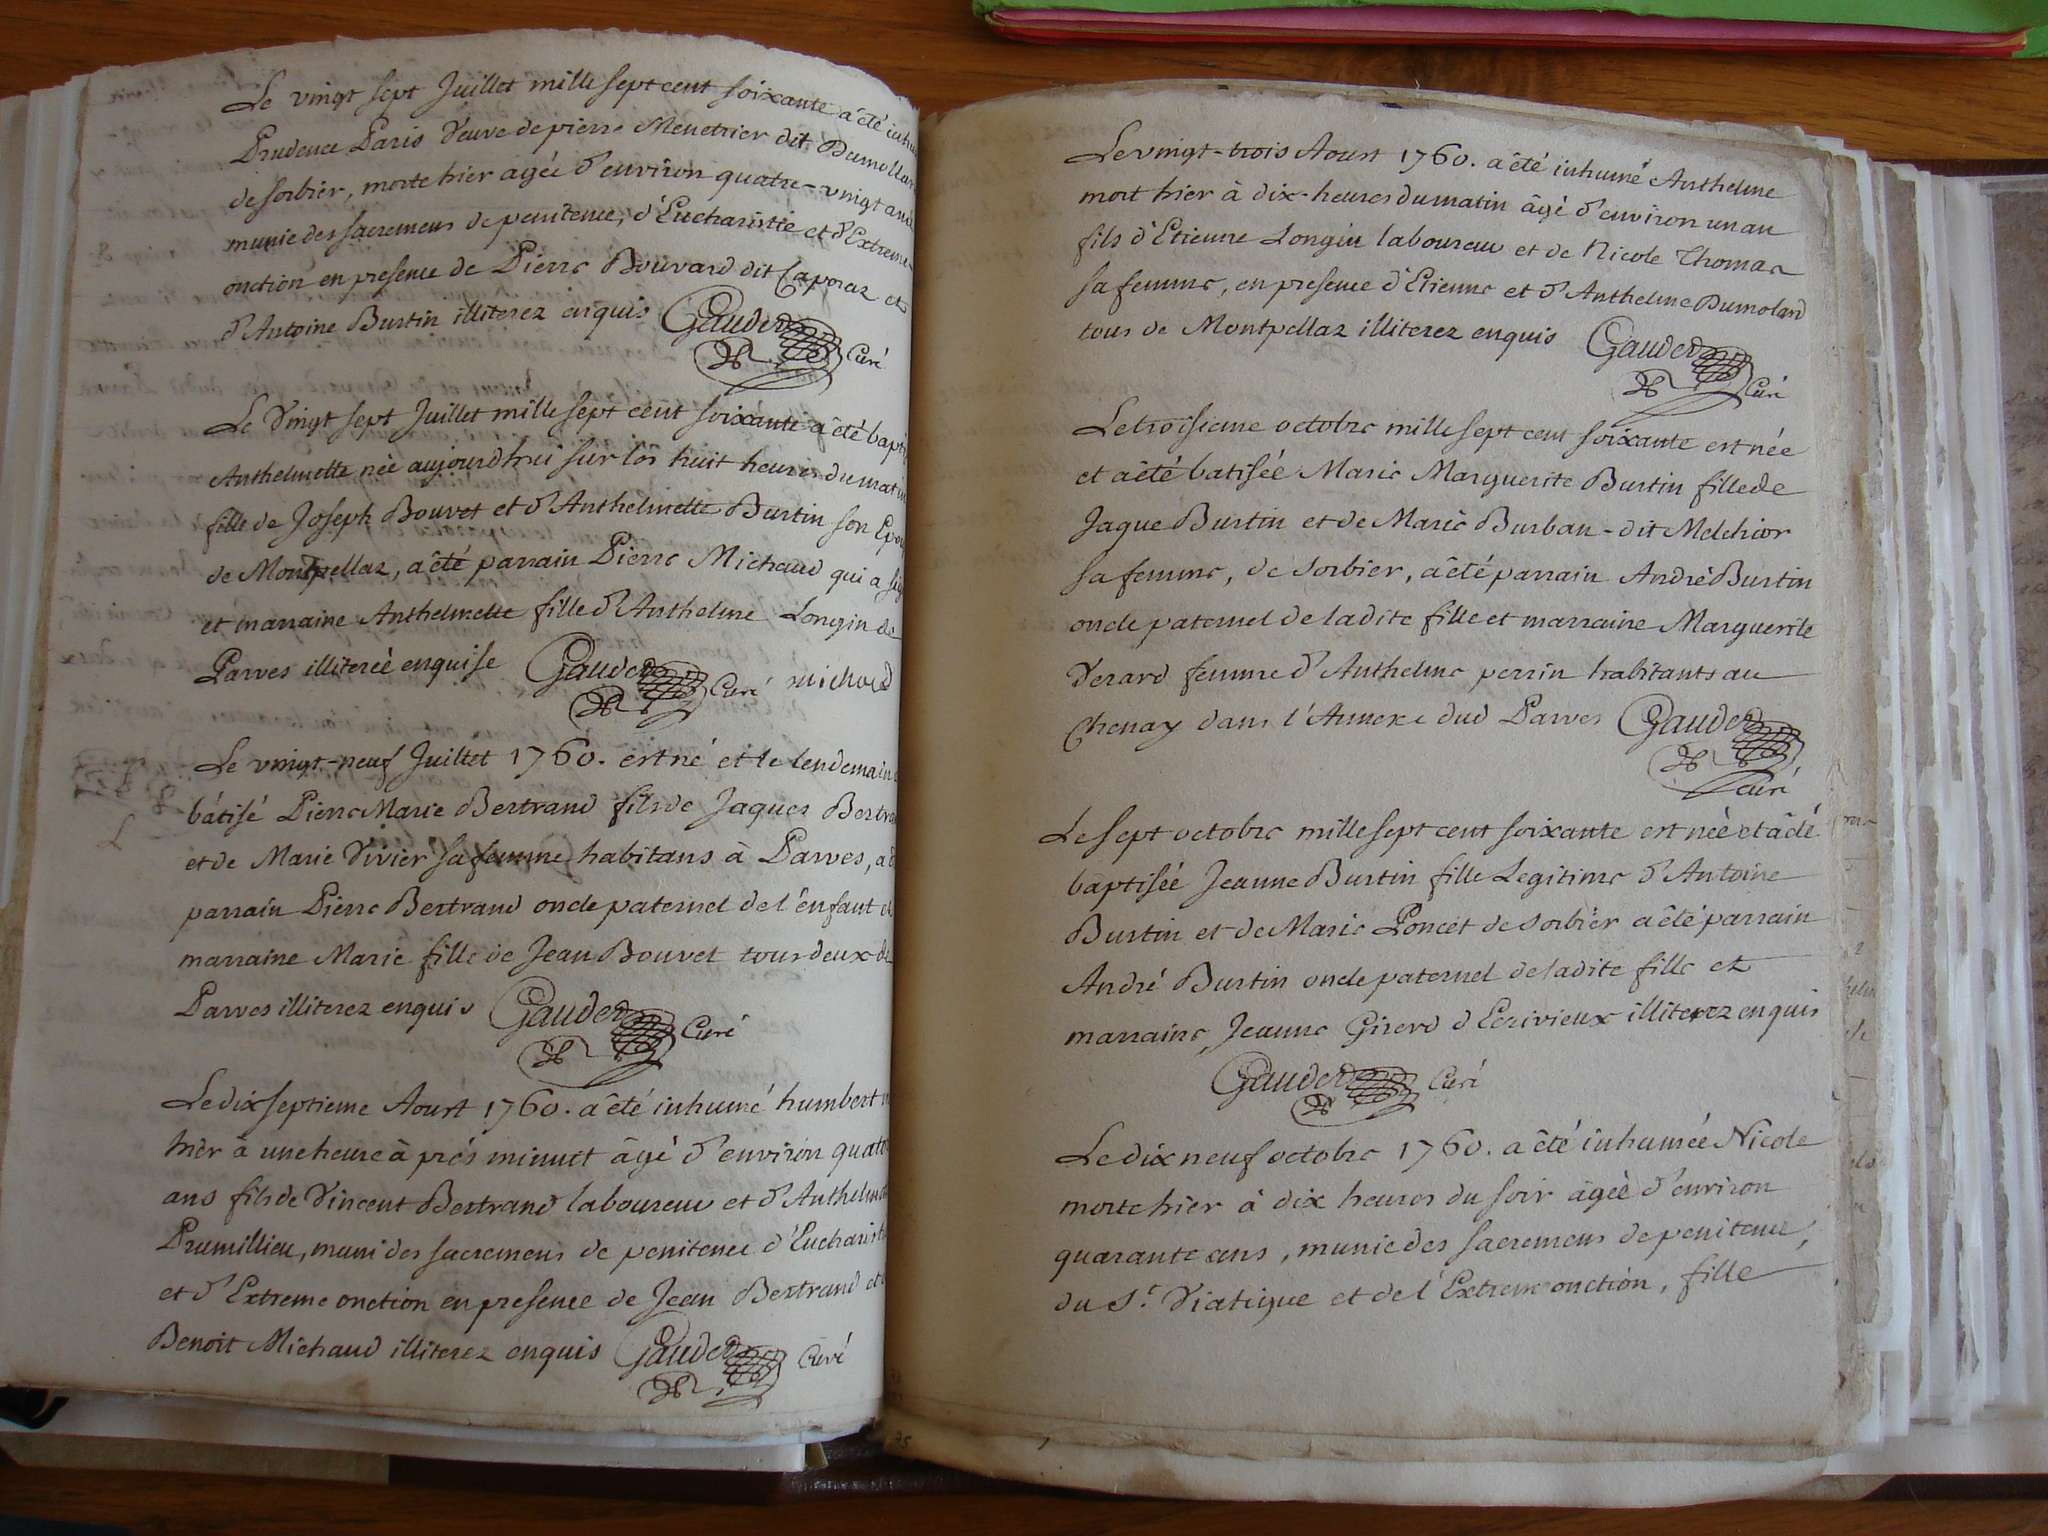 Le vingt sept Juillet mille sept cent soixante a été
Prudence Paris Veuve de pierre Menetrier dit
de Sorbier, morte hier agée d'environ quatre-vingt ans
munie des sacremens de penitence, d'Eucharistie et d'Extreme-
onction en presence de Pierre Bouvard dit Caporaz et
d'Antoine Burtin illiterez enquis Gauder Curé
Le Vingt sept Juillet mille sept cent soixante a été
Anthelmette née aujourdhui sur lés huit heures du matin
fille de Joseph Bouvet et d'Anthelmette Burtin son
de Montpellaz, a été parrain Pierre Michaud qui a
et marraine Anthelmette fille d'Anthelme Longin de
Parves illiterée enquise Gauder Curé michoud
Le vingt-neuf Juillet 1760. est né et le lendemain
bátisé Pierre Marie Bertrand fils de Jaques
et de Marie Vivier sa femme habitans à Parves,
parrain Pierre Bertrand oncle paternel de l'enfant
marraine Marie fille de Jean Bouvet tous deux de
Parves illiterez enquis Gauder Curé
Le dix septieme Aoust 1760. a été inhumé humbert
hier à une heure à prés minuit âgé d'environ
ans fils de Vincent Bertrand laboureur et
Prumillieu, muni des sacremens de penitence
et d'Extreme onction en presence de Jean Bertrand et
Benoit Michaud illiterez enquis Gauder Curé
Le vingt-trois Aoust 1760. a été inhumé Anthelme
mort hier à dix-heures du matin âgé d'environ un an
fils d'Etienne Longin laboureur et de Nicole Thomas
sa femme, en presence d'Etienne et d'Anthelme Dumolard
tous de Montpellaz illiterez enquis Gauder Curé
Le troisieme octobre mille sept cent soixante est née
et a été batisée Marie Marguerite Burtin fille de
Jaque Burtin et de Marie Burban-dit Melchior
sa femme, de Sorbier, a été parrain André Burtin
oncle paternel de ladite fille et marraine Marguerite
Verard femme d'Anthelme perrin habitants au
Chenay dans l'Annexe dud Parves Gauder
Curé
Le sept octobre mille sept cent soixante est née et a été
baptisée Jeanne Burtin fille Legitime d'Antoine
Burtin et de Marie Poncet de Sorbier a été parrain
André Burtin oncle paternel de ladite fille et
marraine, Jeanne Girerd d'Ecrivieux illiterez enquis
Gauder Curé
Le dix neuf octobre 1760. a été inhumée Nicole
morte hier à dix heures du soir âgée d'environ
quarante ans, munie des sacremens de penitence,
du St. Viatique et de l'Extreme onction, fille